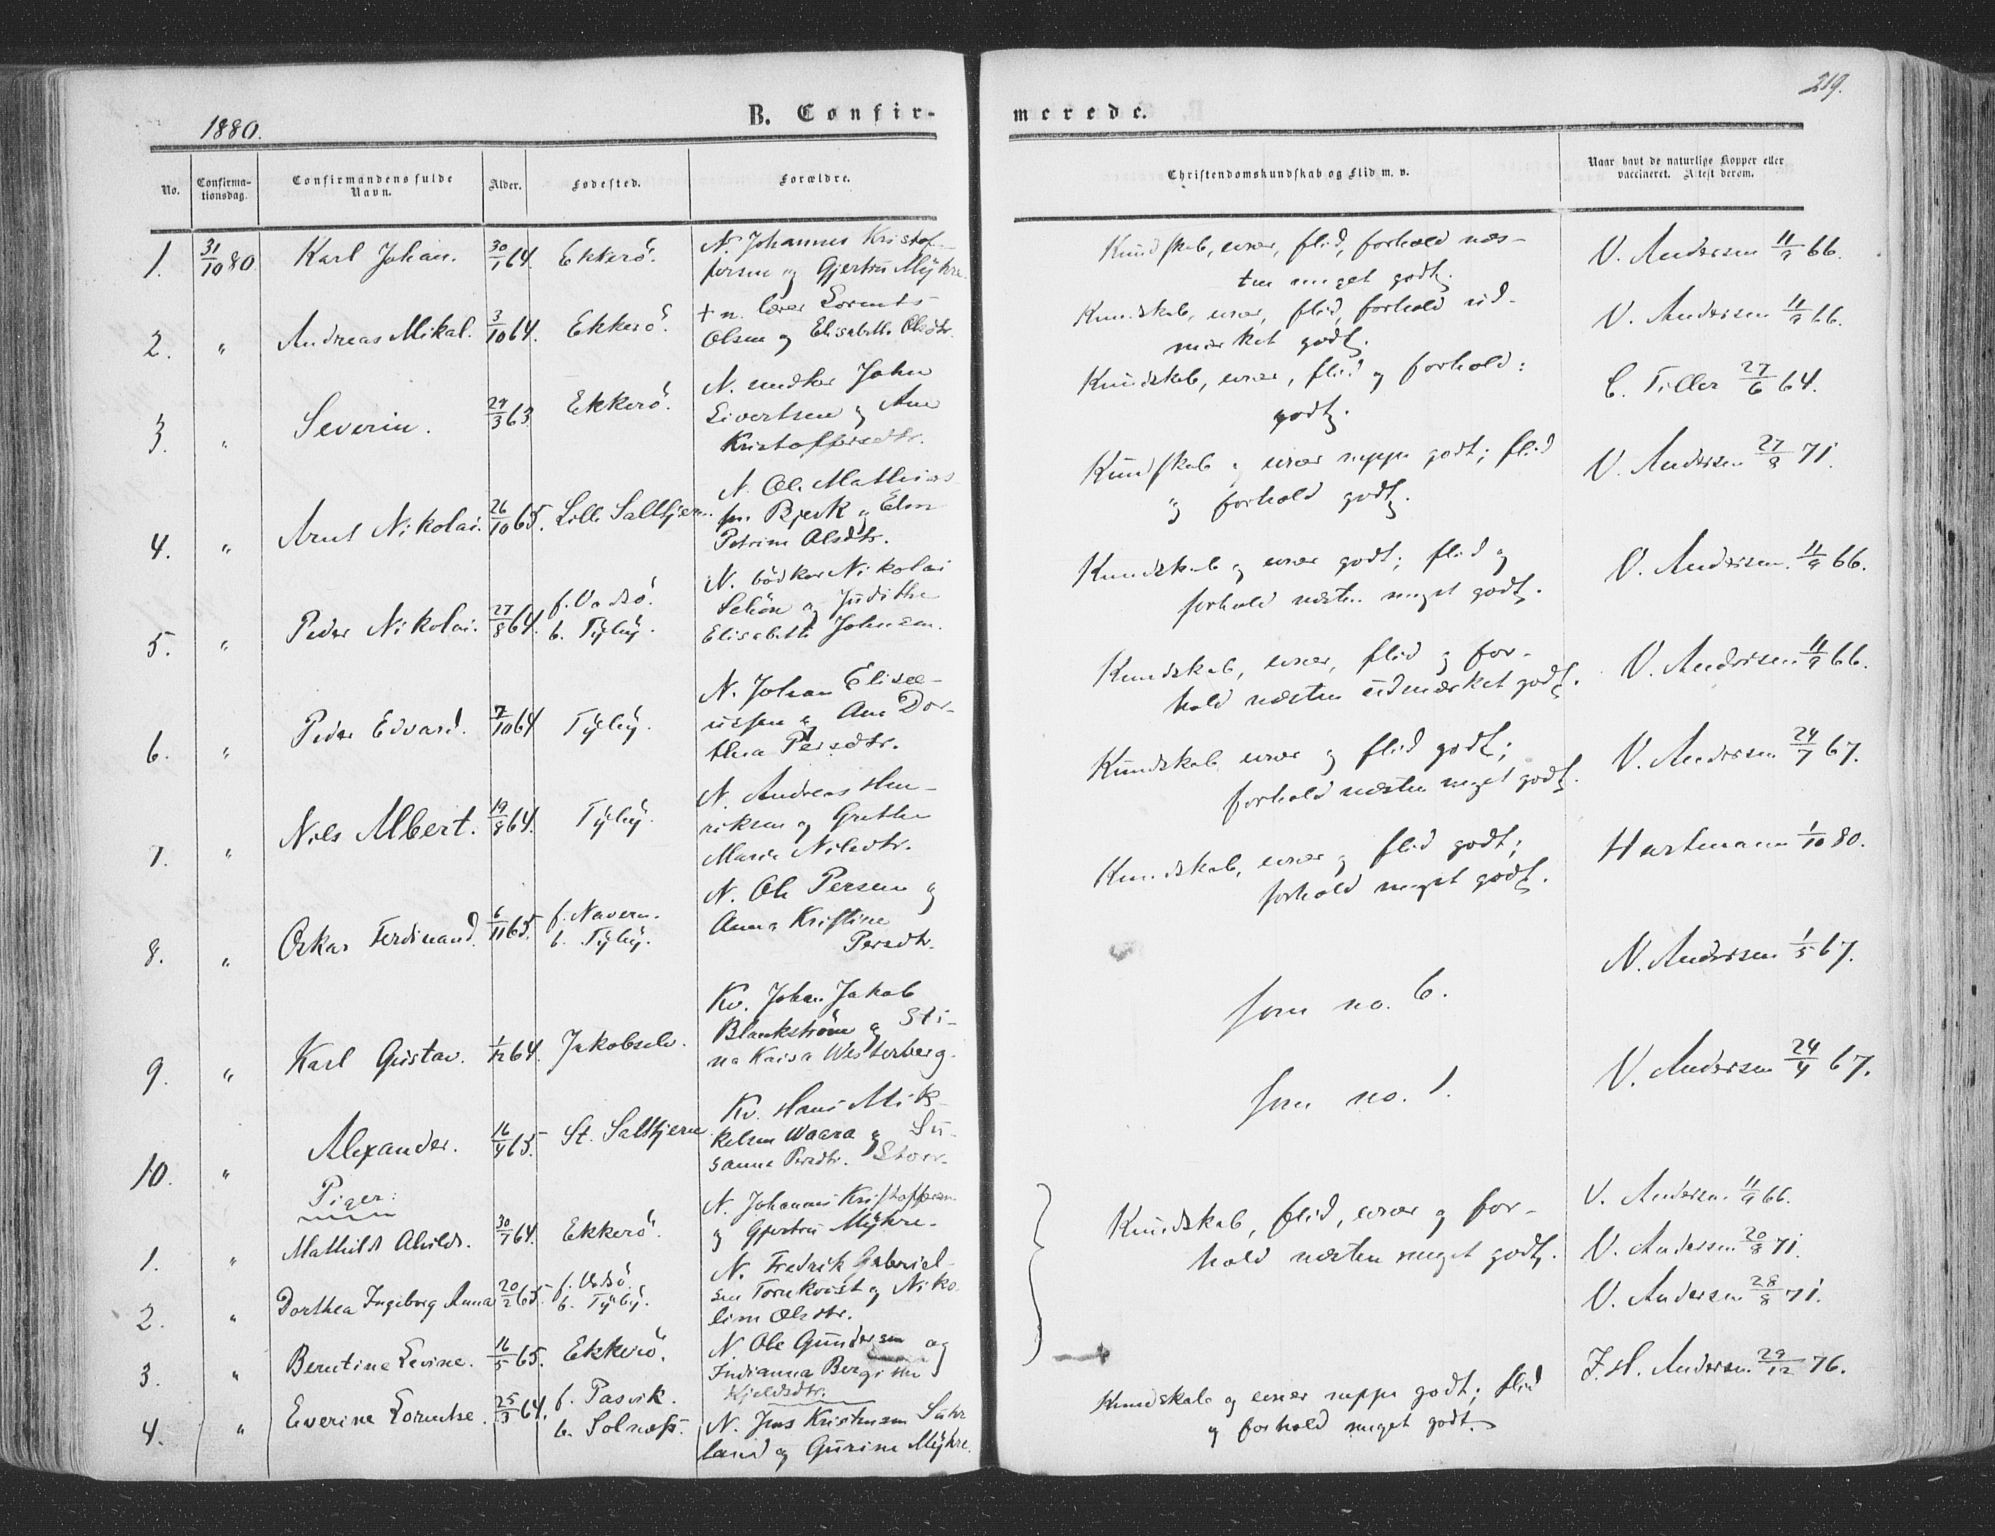 219.
1880.
B. Confir-
merede.
No.
Confirma-
tionsdag.
Confirmandens fulde
Navn.
Alder.
Fødested.
Forældre.
Christendomskundskab og Flid m. v.
Naar havt de naturlige Kopper eller
vaccineret. Attest derom.
1. 31/10 80 Karl Johan. 30/7 64. Ekkerö. N. Johannes Kristof-
fersen og Gjertru Myhre.
Kundskab, evner, flid, forhold næs-
ten meget godt.
V. Andersen 11/9 66.
2. " Andreas Mikal. 3/10 64. Ekkerö. + n. lærer Lorents
Olsen og Elisabeth Olsdtr.
Kundskab, evner, flid, forhold ud-
mærket godt.
V. Andersen 11/9 66.
3. " Severin. 29/3 63 Ekkerö. N. John
Sivertsen og Ane
Kristoffersdtr.
Kundskab, evner, flid og forhold:
godt.
C. Tiller 27/6 64.
4. " Arnt Nikolai. 26/10 65. Lille Saltkjern. N. Ole Mathias-
sen Bjerk og Elen
Petrine Olsdtr.
Kundskab og evner neppe godt; flid
og forhold godt.
V. Andersen 27/8 71.
5. " Peder Nikolai. 27/8 64. f. Vadsö.
b. Tyby.
N. bödker Nikolai
Schön og Judithe
Elisabeth Johnsen.
Kundskab og evner godt; flid og
forhold næsten meget godt.
V. Andersen 11/9 66.
6. " Peder Edvard. 7/10 64 Tyby. N. Johan Elisæ-
ussen og Ane Dor-
thea Persdtr.
Kundskab, evner, flid og for-
hold næsten udmærket godt.
V. Andersen 11/9 66.
7. " Nils Albert. 19/8 64. Tyby. N. Andreas Hen-
riksen og Grethe
Marie Nilsdtr.
Kundskab, evner og flid godt;
forhold næsten meget godt.
V. Andersen 24/7 67.
8. " Oskar Ferdinand. 6/11 65. f. Navern.
b. Tyby.
N. Ole Persen og
Anna Kristine
Persdtr.
Kundskab, evner og flid godt;
forhold meget godt.
Hartmann 1/10 80.
9. " Karl Gustav. 1/12 64. Jakobselv. Kv. Johan Jakob
Blankström og Sti-
na Kaisa Westerberg.
Som no. 6.
N. Andersen 1/5 67.
10. " Alexander. 16/4 65. St. Saltkjern Kv. Hans Mik-
kelsen Waara og Su-
sanna Persdtr. Stor-
Som no. 1.
V. Andersen 24/4 67.
Piger:
1. " Mathilde Alvilde. 30/7 64. Ekkerö. N. Johannes Kristoffersen
og Gjertru Myhre.
Kundskab, flid, evner og for-
hold næsten meget godt.
V. Andersen 11/9 66.
2. " Dorthea Ingeborg Anna 20/2 65. f. Vadsö.
b. Tyby.
N. Fredrik Gabriel-
sen Tornkvist og Niko-
line Olsdtr.
V. Andersen 20/8 71.
3. " Berntine Levine. 16/5 65. Ekkerö. N. Ole Gundersen og
Indianna Bergithe
Kjeldsdtr.
V. Andersen 28/8 71.
4. " Everine Lorentse. 25/3 64. f. Pasvik.
b. Solnæss.
N. Jens Kristensen
land og Gurine Myhre.
Kundskab og evner neppe godt; flid
og forhold meget godt.
J. H. Andersen 29/12 76.